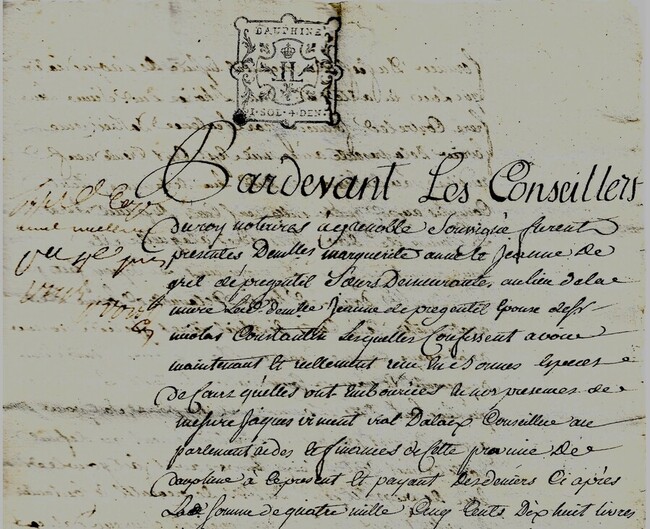 DAUPHINÉ
1·SOL·4·DEN
Pardevant Les Conseillers
Du roy notaires a grenoble Soussigné furent
presentes Demlles marguerite anne et Jeanne De
pregentil Sœurs Demeurantes au lieu de la
mure Lad. demlle Jeanne de pregentil Epouse de Sr
nicolas Constantin Lesquelles Confessent avoir
maintenant et reellement reçu En bonnes Especes
De Cours qu'elles ont Embourcées En nos presences de
messire Jaques vincent vial Dalaix Conseiller au
parlement aides et finances de Cette province De
Dauphiné a Ce present et payant Des deniers Ci après
La Somme de quatre mille Cinq Cents Dix huit livres